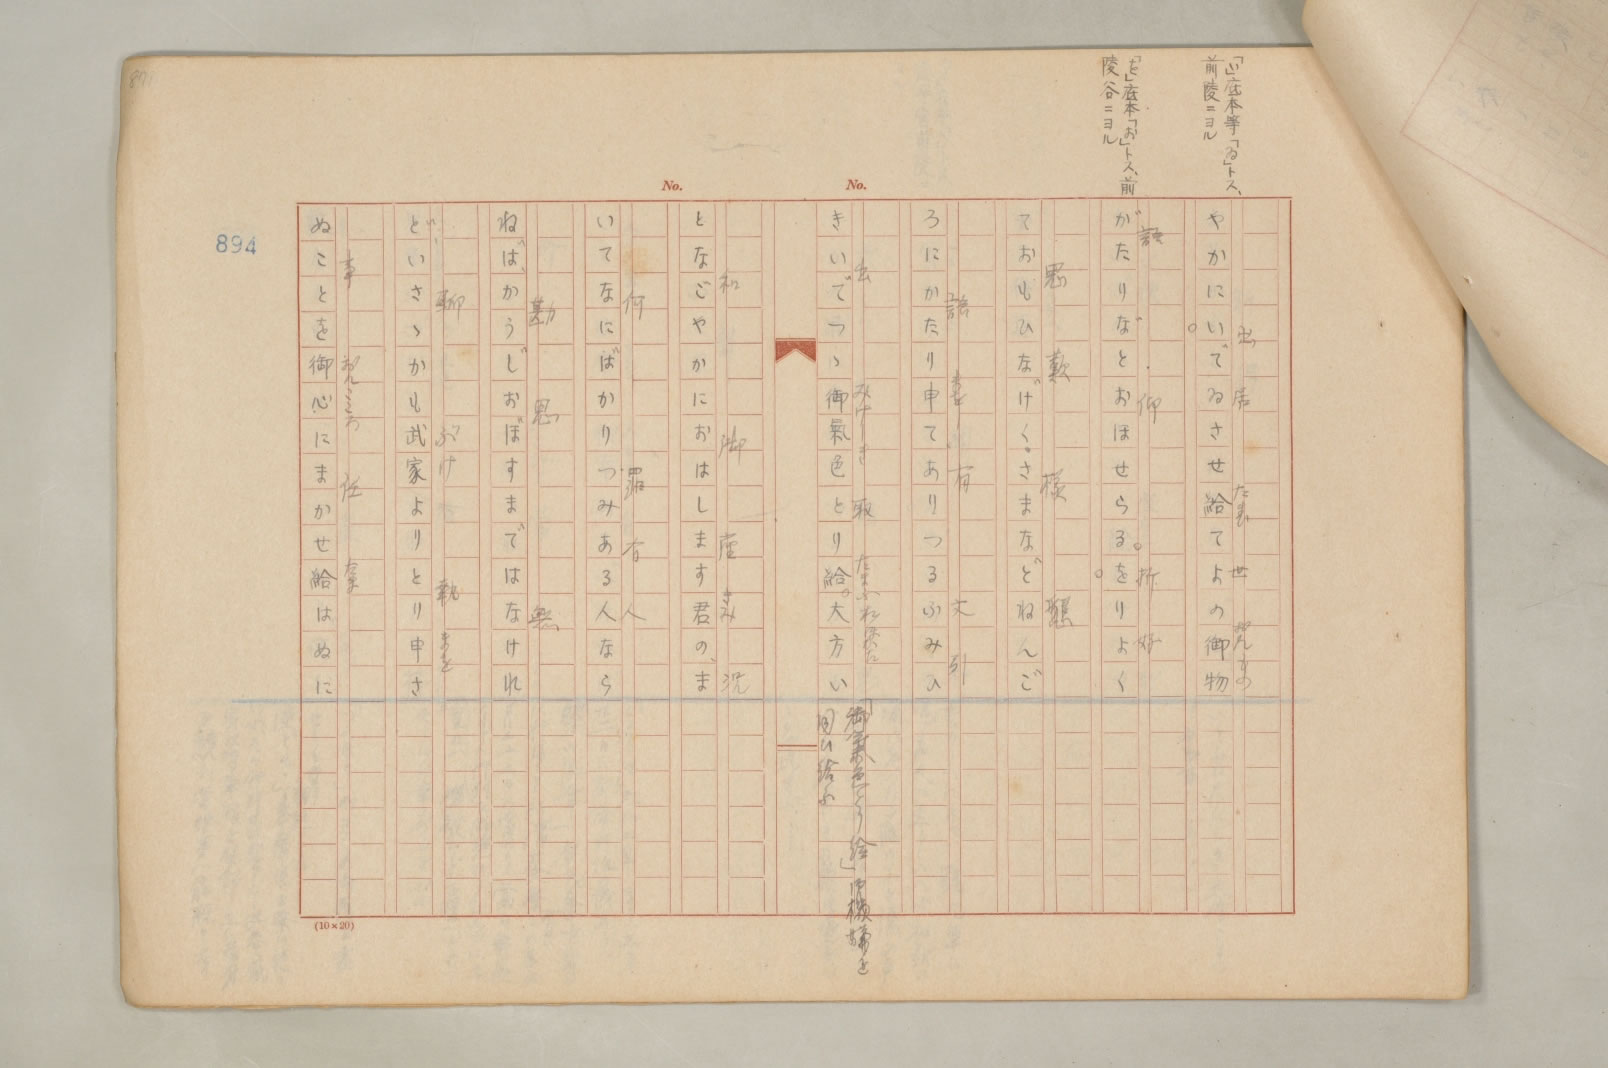 「い」底本等「ゐ」トス、
前陵ニヨル
「を」底本「お」トス、前
陵谷ニヨル
No.
No.
894
やかにいでゐさせ給てよの御物
出 居 たま 世 おんもの
がたりなどおほせらる。をりよく
語 仰 折 好
ておもひなげく。さまなどねんご
思 歎 様 懇
ろにかたり申てありつるふみひ
語 まを 有 文 引
きいでつゝ御氣色とり給。大方い
出 みけしき 取 たまふ
「御氣色とり給」御機嫌を
伺ひ給ふ
となごやかにおはします君の、ま
和 御座 況
いてなにばかりつみある人なら
何 罪 有 人
ねば、かうじおぼすまではなけれ
勘 思 無
ど、いさゝかも武家よりとり申さ
聊 ぶけ 執 まを
ぬことを御心にまかせ給はぬに
事 おんこころ 任 たま
(10×20)